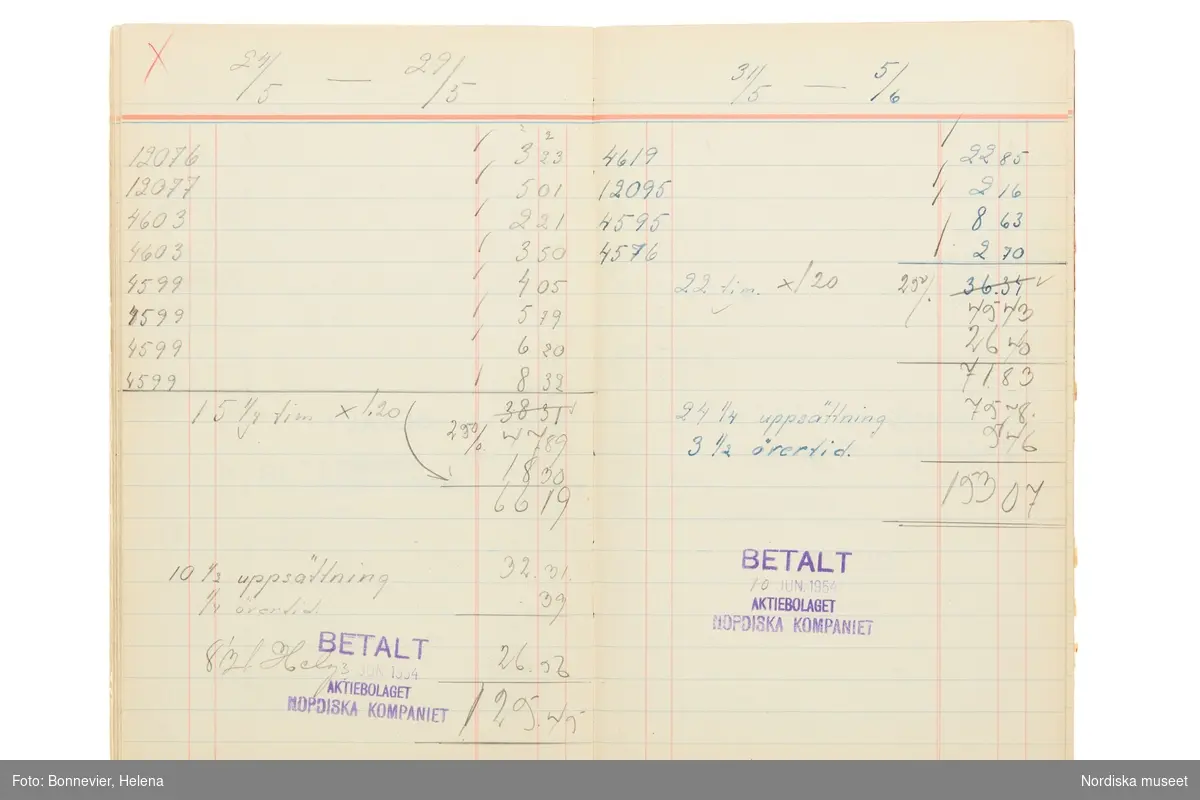 X 24/5 — 29/5
12076 3 23
12077 5 01
4603 2 21
4603 3 50
4599 4 05
4599 5 79
4599 6 20
4599 8 32
38 31
15 1/4 tim x 1.20
25% 47 89
18 30
66 19
10 1/2 uppsättning 32.31.
1/4 övertid. 39
8 1/2 t. Helg 26.56
125.45
BETALT
3 JUN. 1954
AKTIEBOLAGET
NORDISKA KOMPANIET
31/5 — 5/6
4619 22 85
12095 2 16
4595 8 63
4576 2 70
22 tim. x 1 20 25% 36.34
45 43
26 40
71 83
24 1/4 uppsättning 75 78.
3 1/2 övertid. 5 46
153 07
BETALT
10 JUN. 1954
AKTIEBOLAGET
NORDISKA KOMPANIET
Foto: Bonnevier, Helena
Nordiska museet